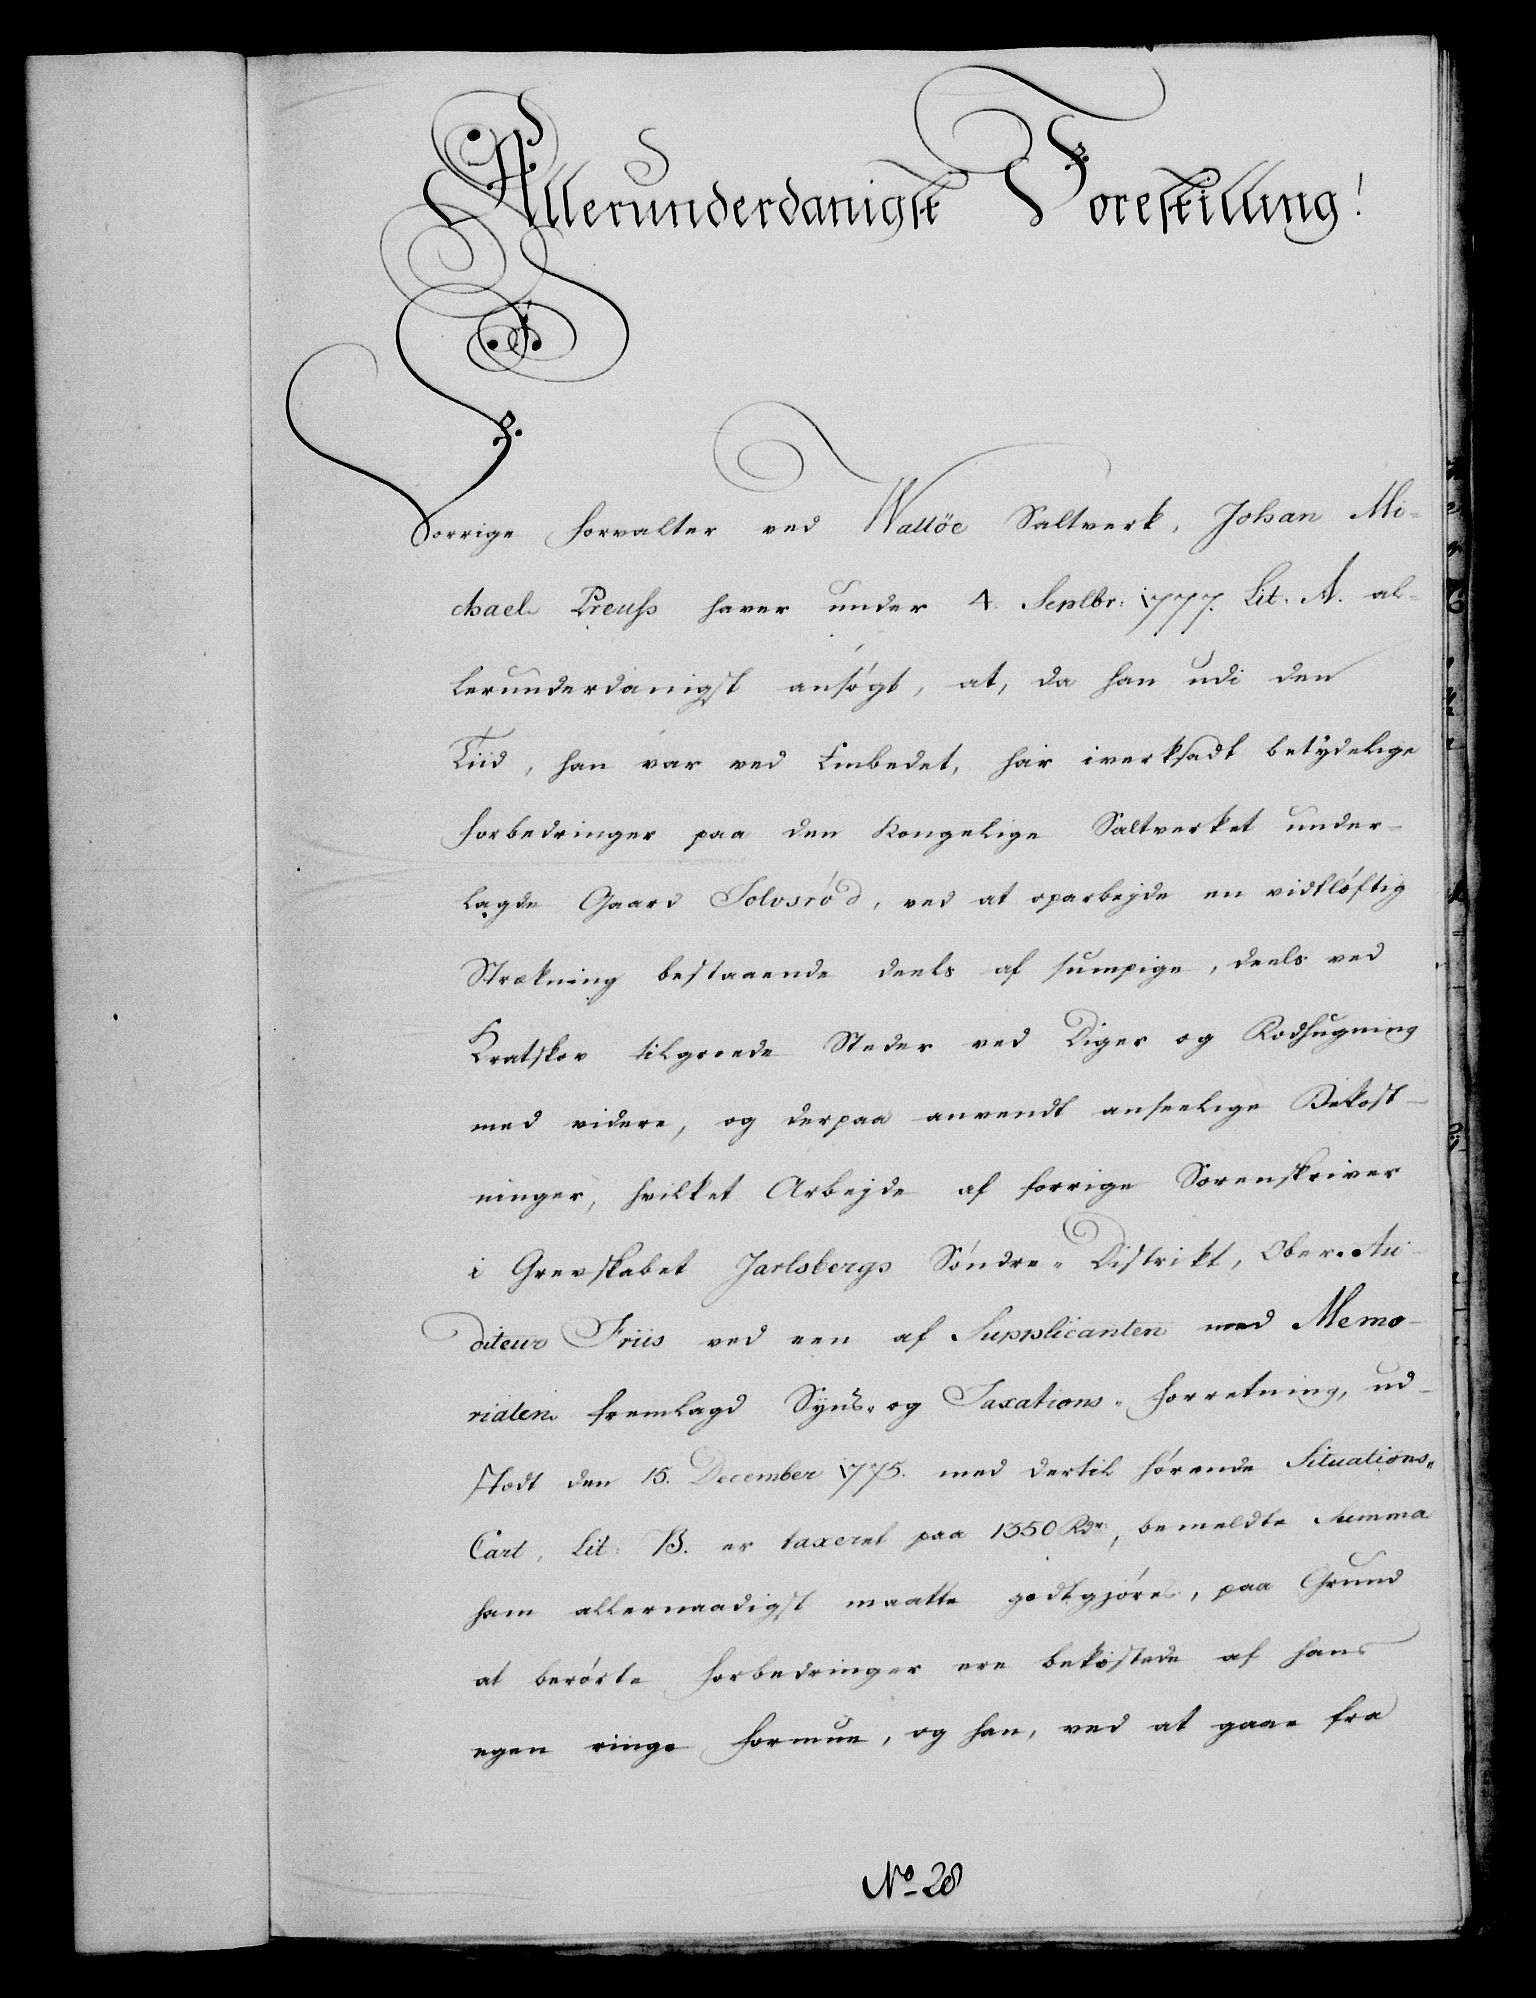 Allerunderdanigst Forestilling!
Forrige Forvalter ved Walløe Saltverk, Johan Mi-
chael Preuss haver under 4. Septbr: 1777. Lit. A. al-
lerunderdanigst ansøgt, at, da han udi den
Tiid, han var ved Embedet, har iverksadt betydelige
Forbedringer paa den Kongelige Saltverket under-
lagde Gaard Solvsrød, ved at oparbejde en vidtløftig
Strækning bestaaende deels af sumpige, deels ved
Kratskov tilgroede Steder ved Diger og Rodhugning
med videre, og derpaa anvendt anseelige Bekost-
ninger, hvilket Arbejde af forrige Sorenskriver
i Grevskabet Jarlsbergs Søndre- Distrikt, Ober-Au-
diteur Friis ved een af Supplicanten med Memo-
rialen fremlagd Syns- og Taxations-Forretning, ud-
stædt den 15. December 1775. med dertil hørende Situations-
Cart, Lit: B. er taxeret paa 1350 Rdr, bemeldte Summa
ham allernaadigst maatte godtgjøres, paa Grund
at berørte Forbedringer ere bekostede af hans
egen ringe Formue, og han, ved at gaae fra
No 28